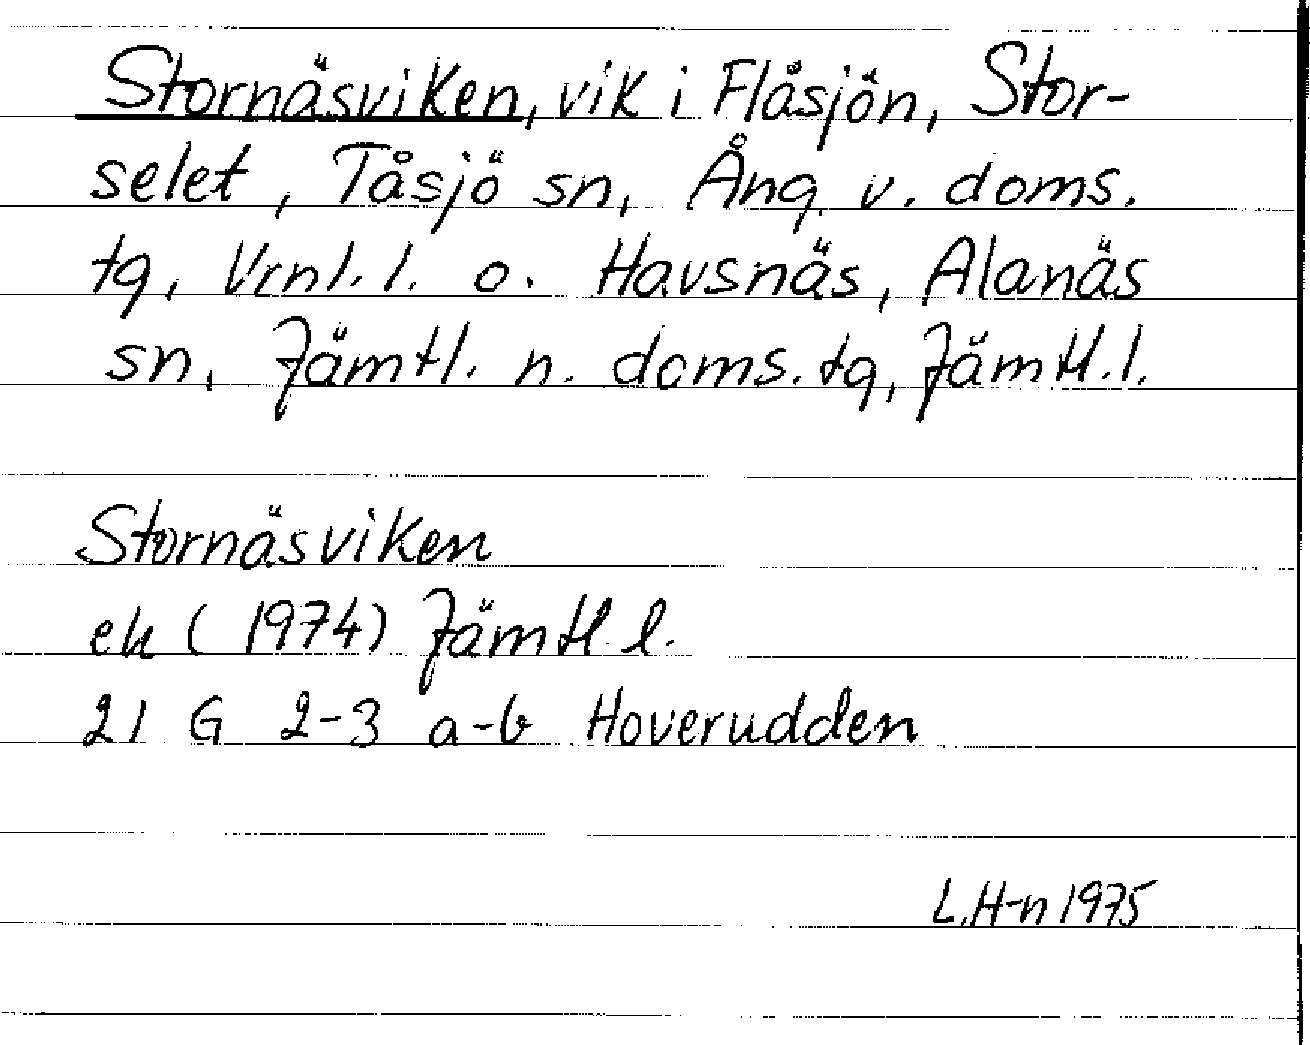 Stornäsviken, vik i Flåsjön, Stor-
selet, Tåsjö sn, Ång. v. doms.
tg, Vrnl. l. o. Havsnäs, Alanäs
sn, Jämtl. n. doms. tg, Jämtl. l.
Stornäsviken
ek (1974) Jämtl. l.
21 G 2-3 a-b Hoverudden
L. H-n 1975